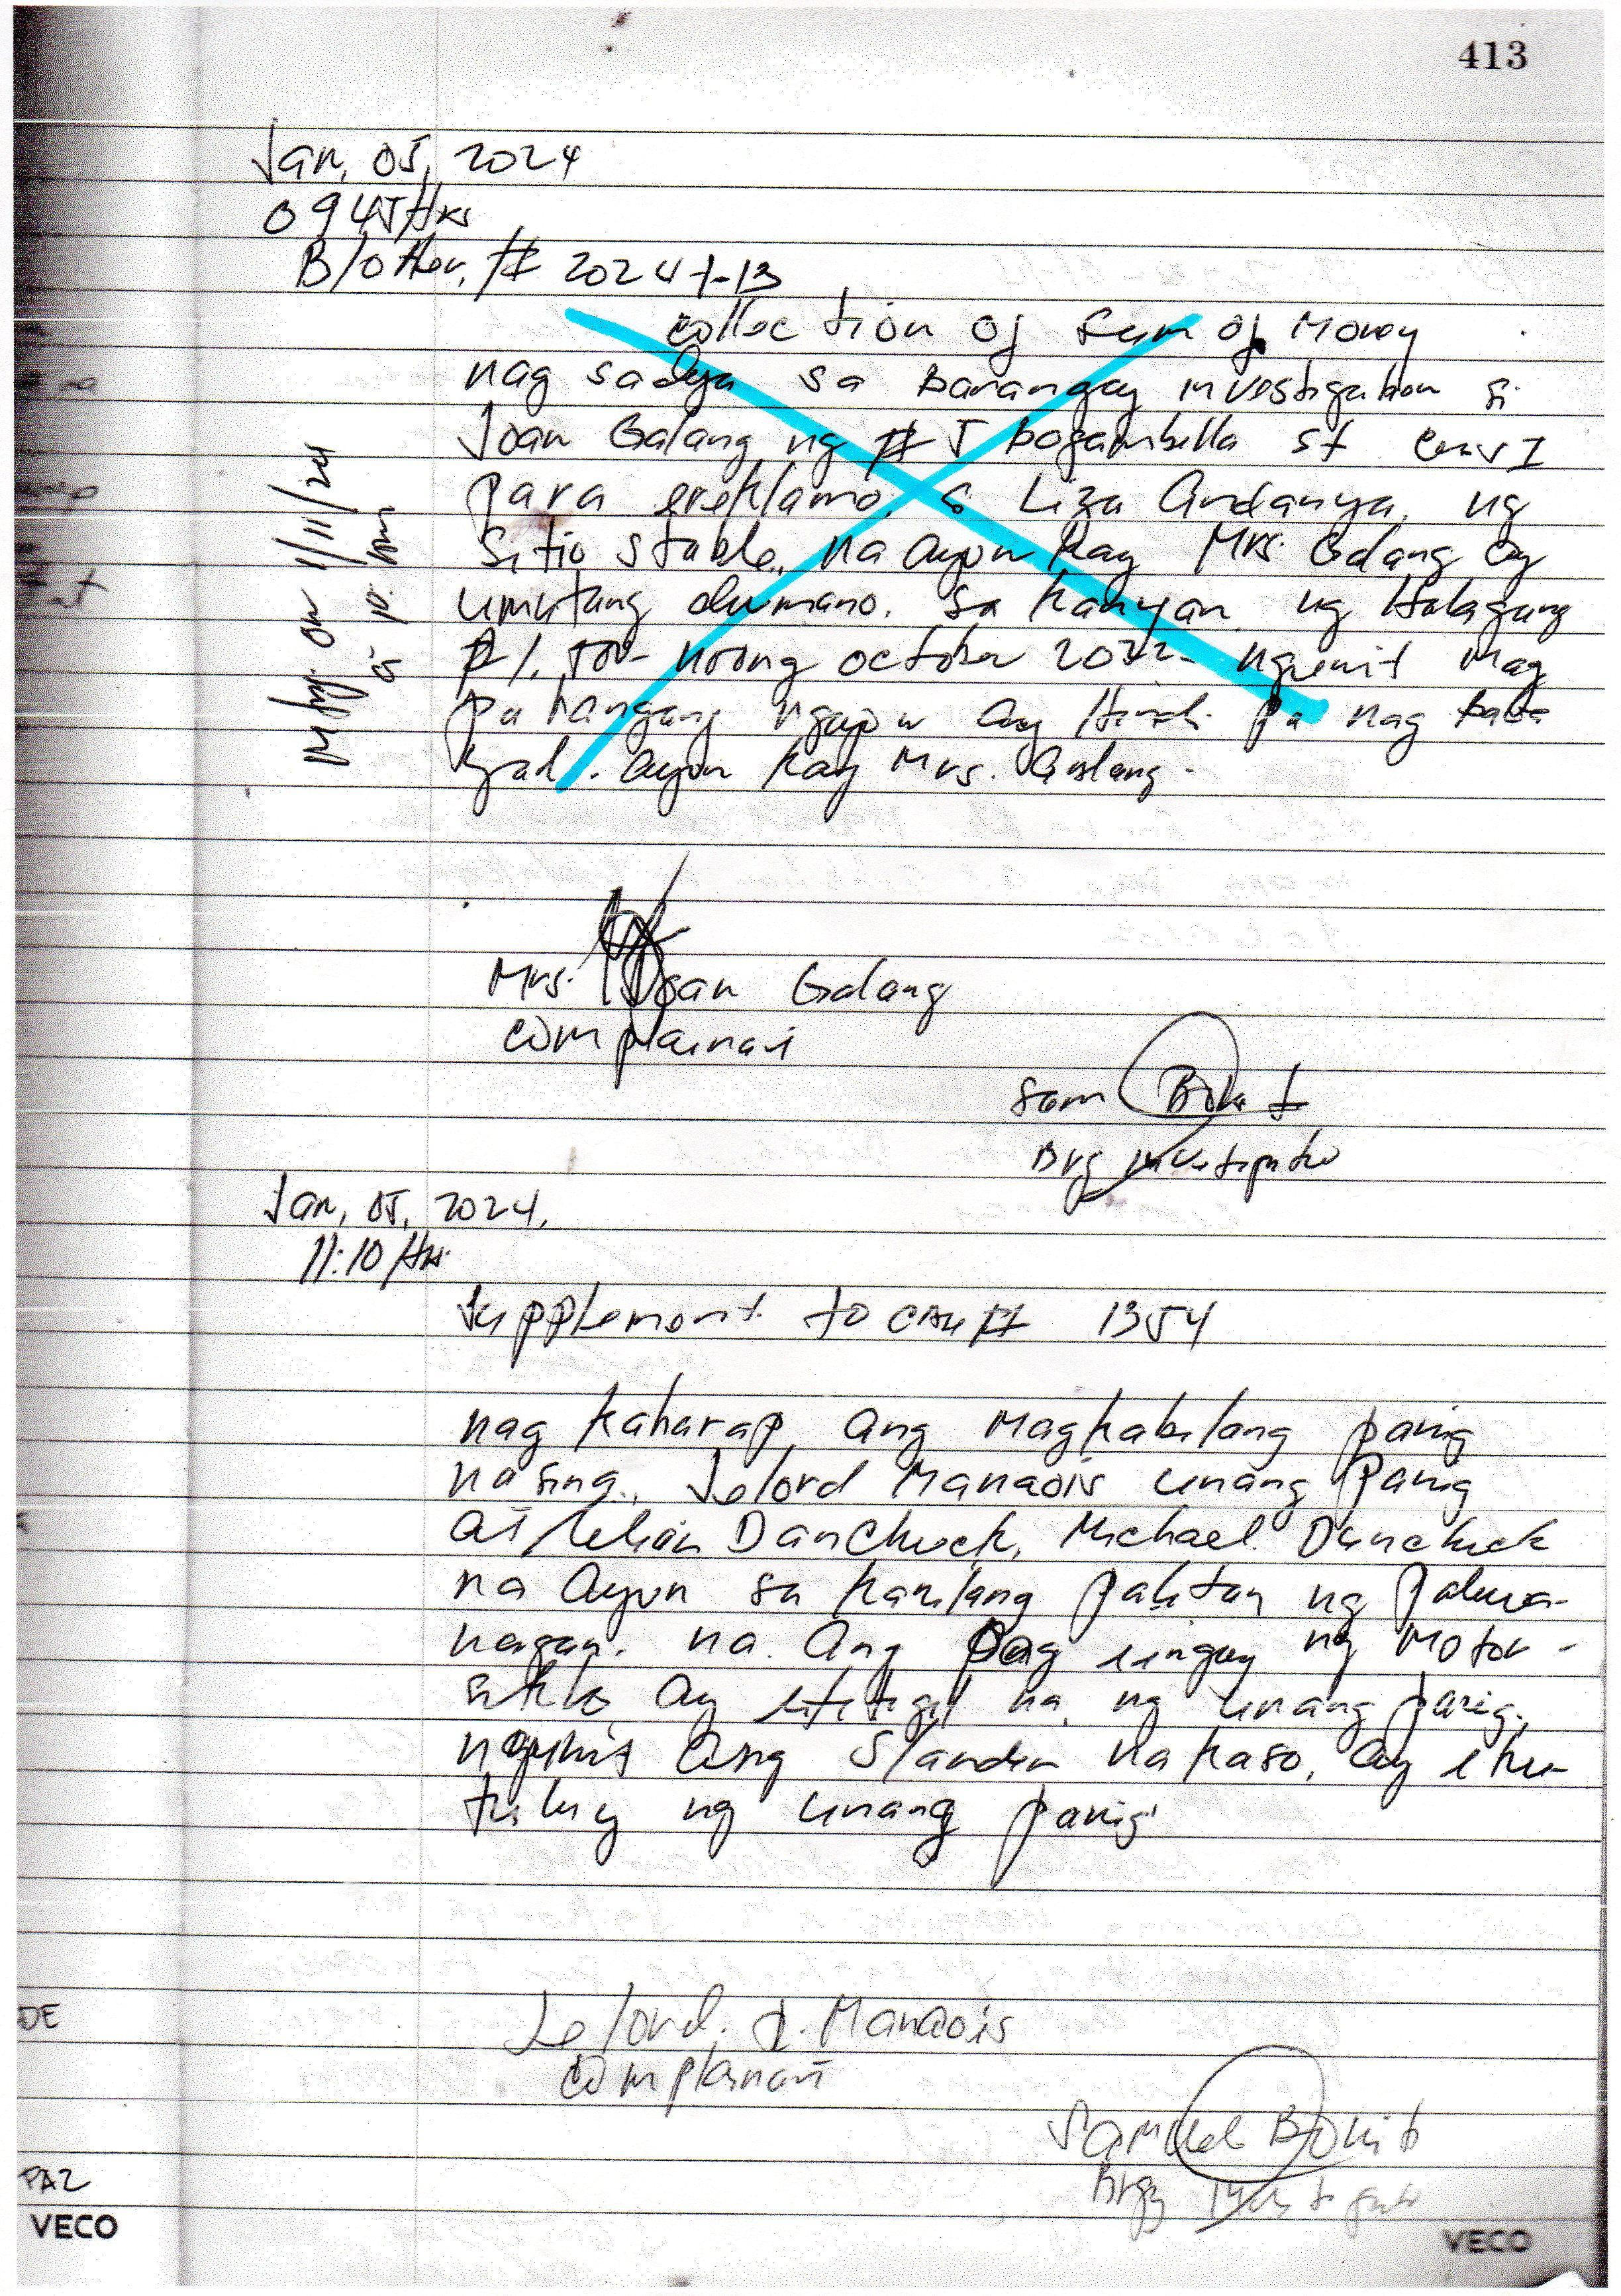 413
Jan, 05, 2024
0945Hrs
Blotter, # 2024 1-13
collection of Sum of Money
nag sadya sa Barangay investigation si
Joan Galang ng # 5 bogambilla st
para ereklamo, si Liza Andanya, ng
Sitio stable, na ayon kay Mrs. Galang ay
umutang dumano. Sa kanyan, ng Halagang
noong october 2022- ngunit mag
pa hangang ngayon ay Hindi pa nag baba
yad. ayon kay Mrs. Galang.
Mtg. on 1/11/24
Mrs. Joan Galang
complainant
Sam
Brg investigator
Jan, 05, 2024,
11:10 Hrs
Supplement to case # 1354
nag kaharap, ang Magkabilang panig
na sina., Jelord Manaois unang panig
at Danchuck, Michael Danchuck
na ayon sa kanilang palitan ng paliwa-
nagan. na. ang pag iingay ng Motor-
siklo, ay ititigil na, ng unang panig,
ngunit ang slander na kaso, ay itu-
tuluy ng unang panig.
Jelord. J. Manaois
complainant
Samuel
Brgy Investigator
DE
PAZ
VECO
VECO